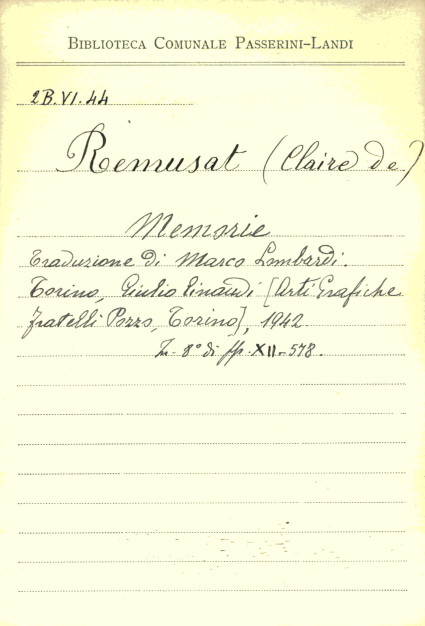 BIBLIOTECA COMUNALE PASSERINI-LANDI
2B.VI.44
Rémusat (Claire de)
Memorie
Traduzione di Marco Lombardi.
Torino, Giulio Einaudi [Arti Grafiche
Fratelli Pozzo, Torino], 1942
In-8° di pp. XII-578.